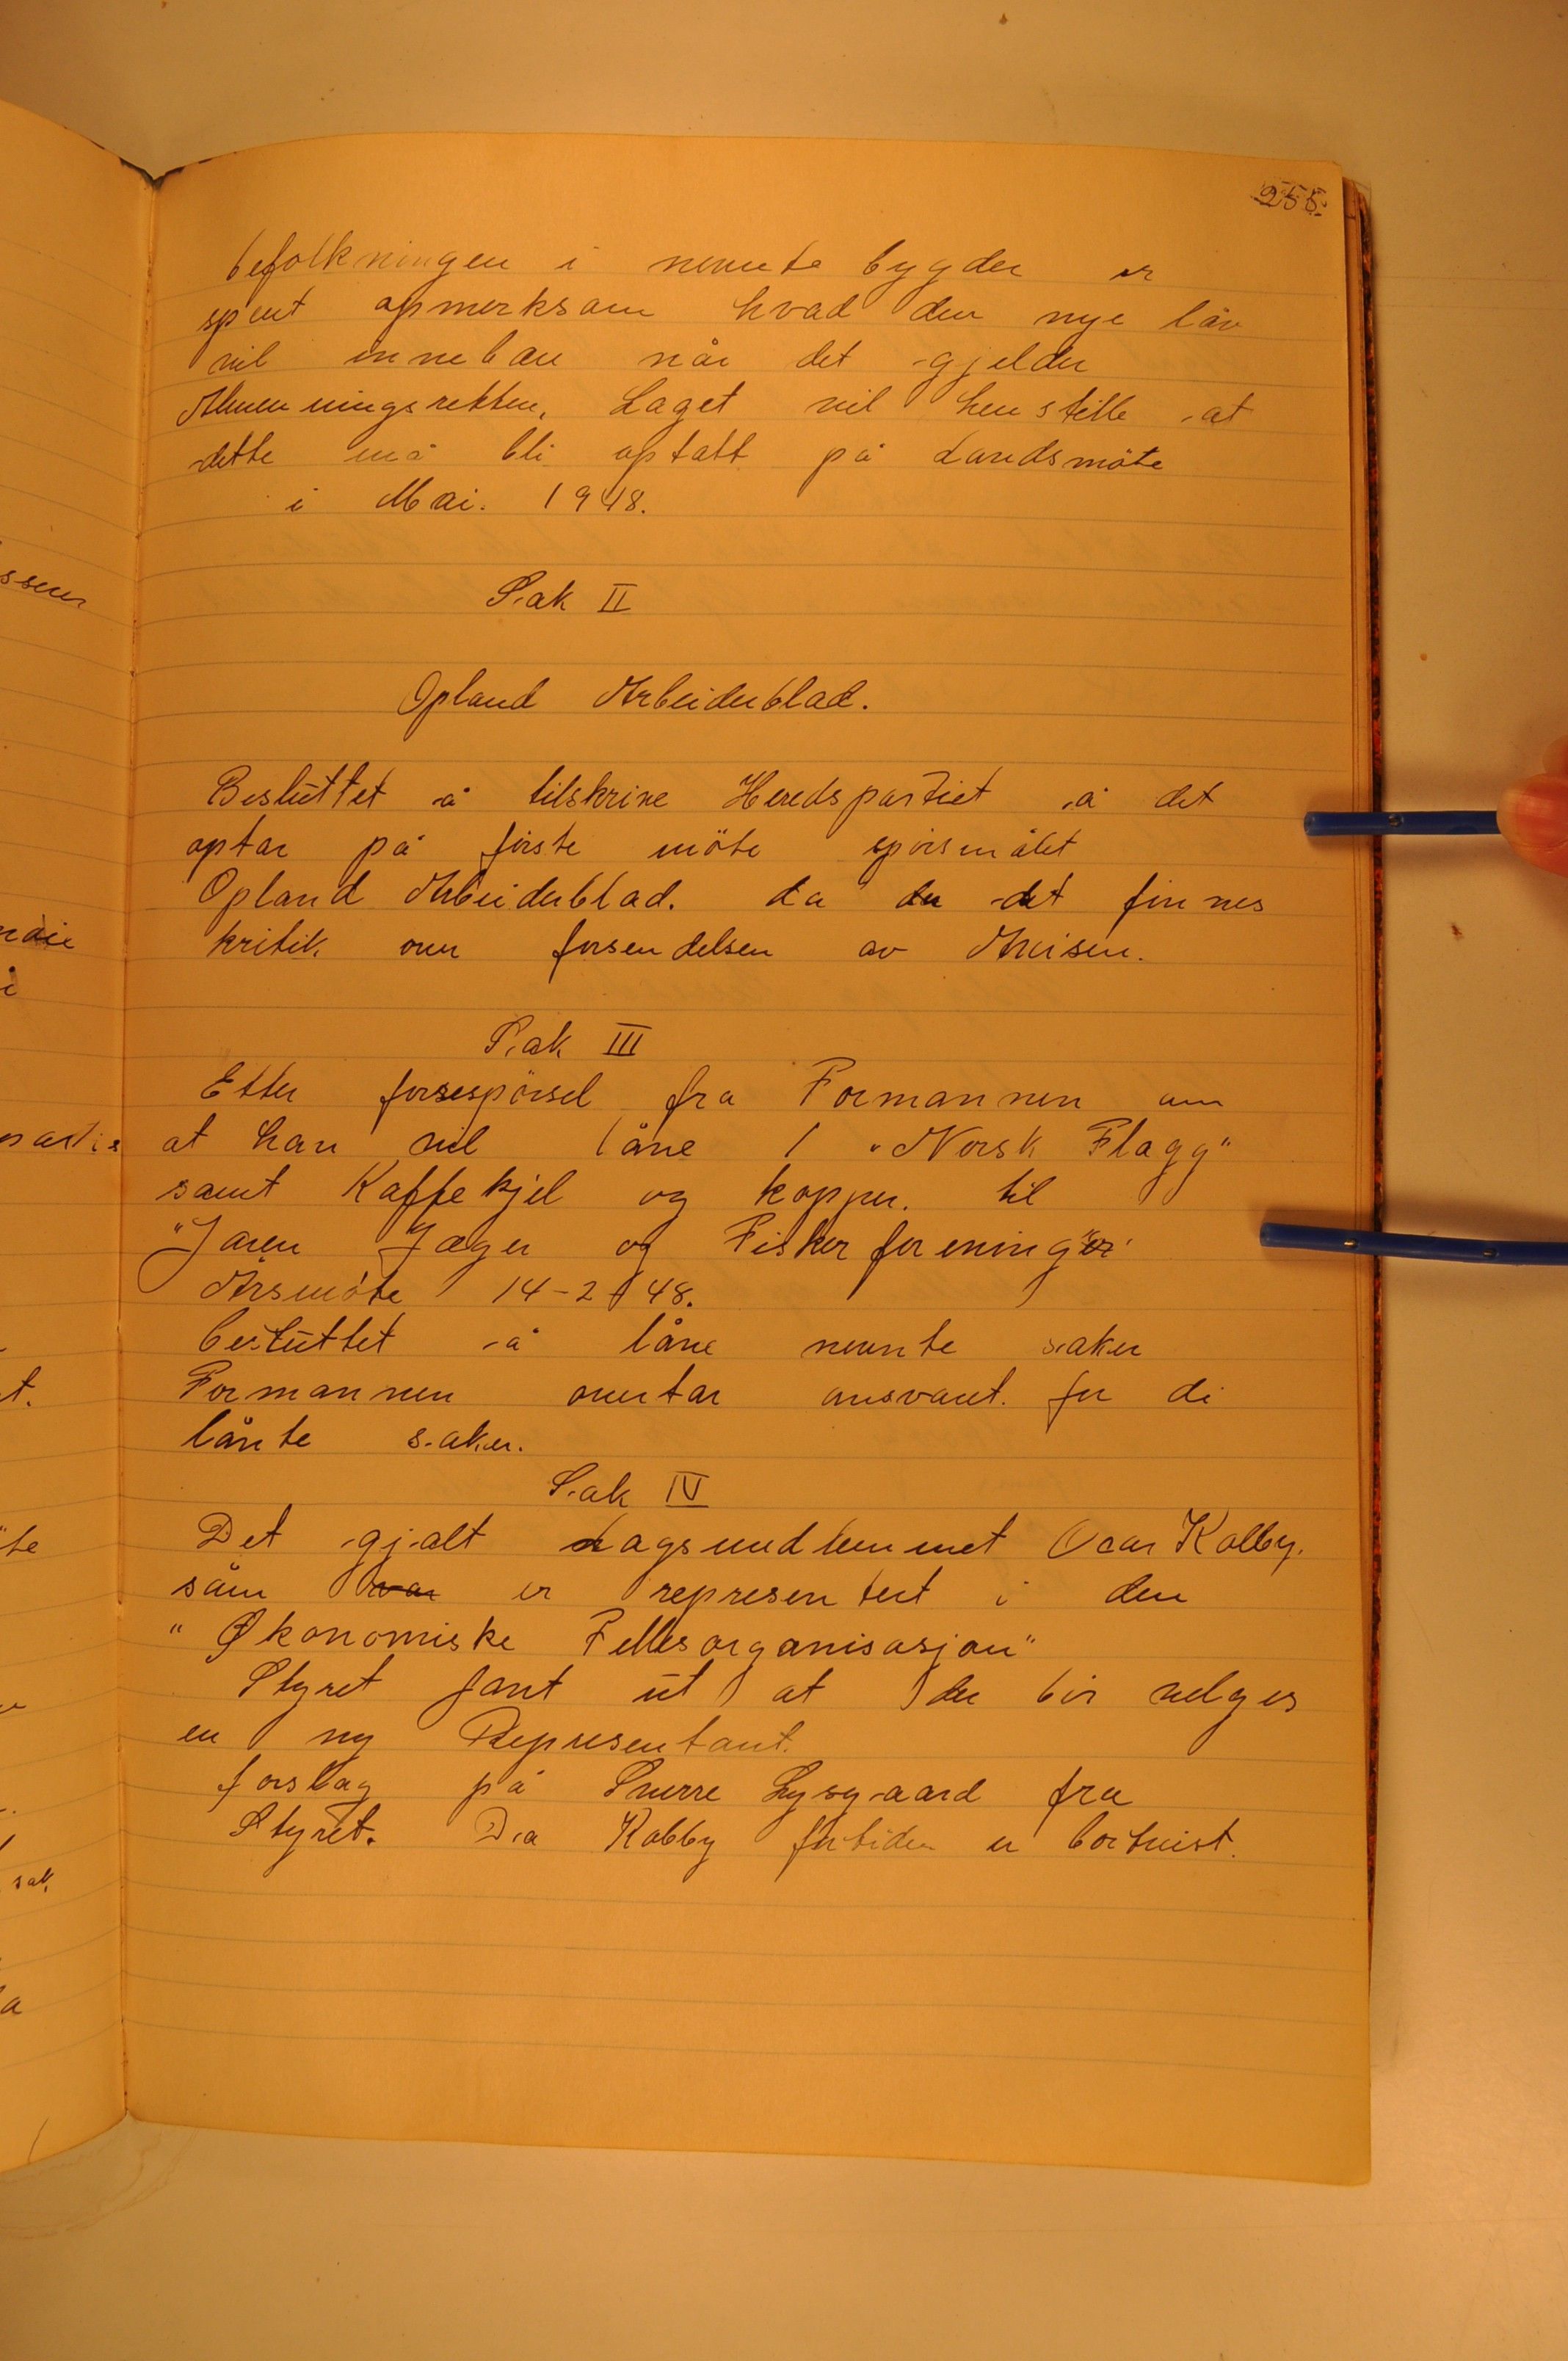 255.
befolkningen i nevnte bygder er
spent opmerksom hvad den nye låv
vil innebære når det gjelder
Almenningsretten. Laget vil henstille at
dette må bli optatt på Landsmöte
i Mai. 1948.
Sak II
Opland Arbeiderblad.
Besluttet å tilskrive Heredspartiet å det
optar på förste möte spörsmålet
Opland Arbeiderblad. da der det finnes
kritik over forsendelsen av Avisen.
Sak III
Etter forsespörsel fra Formannen om
at han vil låne 1 "Norsk Flagg"
samt Kaffekjel og kopper. til
"Jaren Jæger og Fiskerforening"er
Årsmöte 14-2-48.
besluttet å låne nevnte saker
Formannen overtar ansvaret. for di
lånte saker.
Sak IV
Det gjalt Lagsmedlemmet Kolby.
såm var er representert i den
"Økonomiske Fellesorganisasjon"
Styret fant ut at der bör velges
en ny Representant.
forslag på Snerre Lysgaard fra
Styret. Da Kolby fortiden er bortreist.